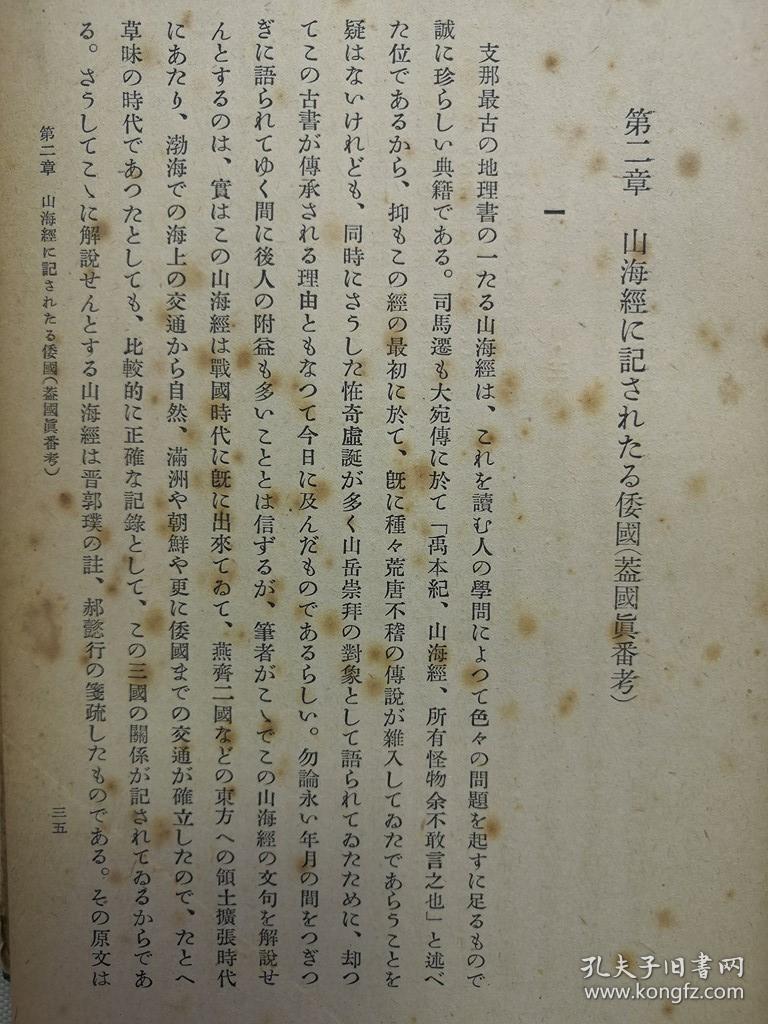 第二章　山海經に記されたる倭國（葢國眞番考）
一
支那最古の地理書の一たる山海經は、これを讀む人の學問によつて色々の問題を起すに足るもので
誠に珍らしい典籍である。司馬遷も大宛傳に於て「禹本紀、山海經、所有怪物余不敢言之也」と述べ
た位であるから、抑もこの經の最初に於て、旣に種々荒唐不稽の傳說が雜入してゐたであらうことを
疑はないけれども、同時にさうした恠奇虛誕が多く山岳崇拜の對象として語られてゐたために、却つ
てこの古書が傳承される理由ともなつて今日に及んだものであるらしい。勿論永い年月の間をつぎつ
ぎに語られてゆく間に後人の附益も多いこととは信ずるが、筆者がこゝでこの山海經の文句を解說せ
んとするのは、實はこの山海經は戰國時代に旣に出來てゐて、燕齊二國などの東方への領土擴張時代
にあたり、渤海での海上の交通から自然、滿洲や朝鮮や更に倭國までの交通が確立したので、たとへ
草昧の時代であつたとしても、比較的に正確な記錄として、この三國の關係が記されてゐるからであ
る。さうしてこゝに解說せんとする山海經は晋郭璞の註、郝懿行の箋疏したものである。その原文は
第二章　山海經に記されたる倭國（葢國眞番考）
三五
孔夫子旧书网
www.kongfz.com